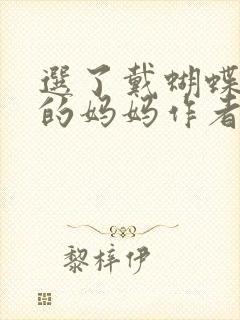 選了戴蝴蝶
的妈妈作者
黎梓伊